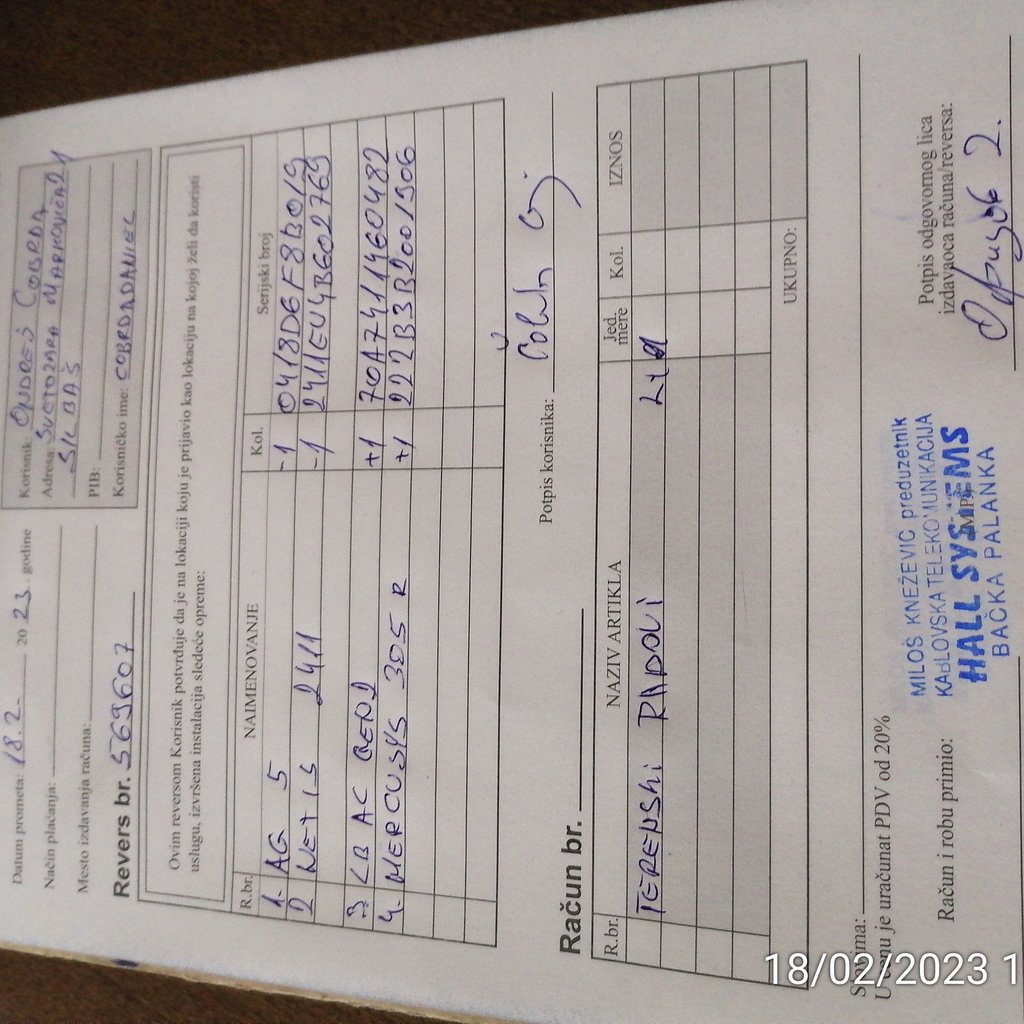 Datum prometa: 18.2. 2023. godine
Način plaćanja:
Mesto izdavanja računa:
Revers br. 569607
Korisnik: ONDREJ ČOBRDA
Adresa: SVETOZARA MARKOVIĆA 21
SILBAŠ
PIB:
Korisničko ime: COBRDADANIEL
Ovim reversom Korisnik potvrđuje da je na lokaciji koju je prijavio kao lokaciju na kojoj želi da koristi
uslugu, izvršena instalacija sledeće opreme:
R.br. NAIMENOVANJE Kol. Serijski broj
1. AG 5 -1 0418D6F8B019
2 NETIS 2411 -1 2411EU4B602769
3 LB AC GEN2 +1 70A7411460482
4. MERCUSYS 305 R +1 222B3B2001906
Potpis korisnika:
Račun br.
R.br. NAZIV ARTIKLA Jed. mere Kol. IZNOS
TERENSKI RADOVI
UKUPNO:
Slovima:
U cenu je uračunat PDV od 20%
Račun i robu primio:
MILOŠ KNEŽEVIĆ preduzetnik
KABLOVSKA TELEKOMUNIKACIJA
HALL SYSTEMS
BAČKA PALANKA
Potpis odgovornog lica
izdavaoca računa/reversa:
18/02/2023 1